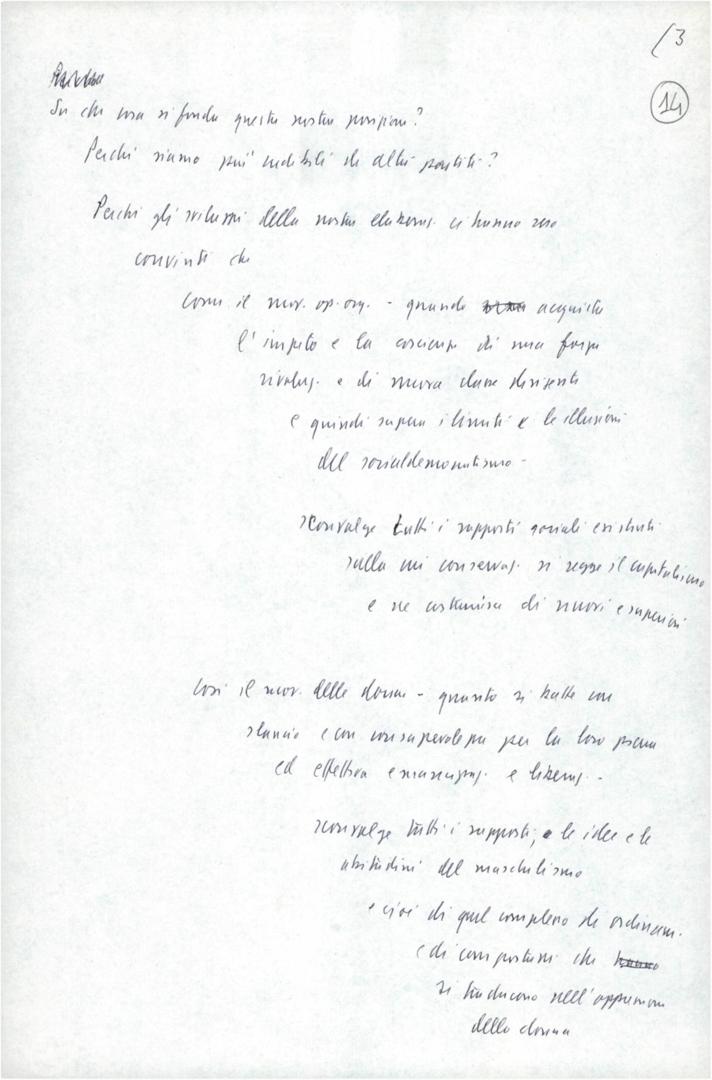 /3
14
Su che cosa si fonda questa nostra posizione?
Perché siamo più credibili di altri partiti?
Perché gli sviluppi della nostra elaboraz. ci hanno reso
convinti che
come il mov. op. org. - quando acquista
l'impeto e la coscienza di una forza
rivoluz. e di nuova classe dirigente
e quindi supera i limiti e le illusioni
del socialdemocratismo -
sconvolge tutti i rapporti sociali esistenti
sulla cui conservaz. si regge il capitalismo
e ne costruisce di nuovi e superiori
così il mov. delle donne - quanto si batte con
slancio e con consapevolezza per la loro piena
ed effettiva emancipaz. e liberaz. -
sconvolge tutti i rapporti, e le idee e le
abitudini del maschilismo
e cioè di quel complesso di ordinam.
e di comportam. che
si traducono nell'oppressione
della donna